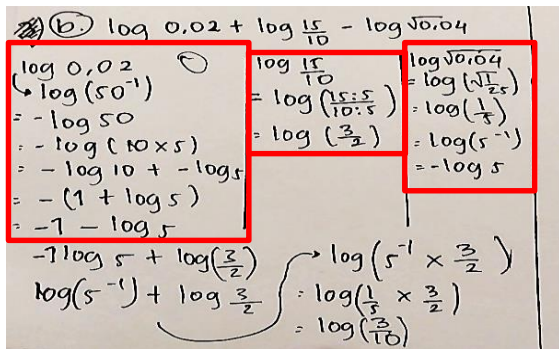 b. log 0,02 + log 15/10 - log √0,04
log 0,02
log(50⁻¹)
= -log 50
= -log(10×5)
= -log 10 + -log 5
= -(1 + log 5)
= -1 - log 5
log 15/10
= log(15:5/10:5)
= log(3/2)
log √0,04
= log(√1/25)
= log(1/5)
= log(5⁻¹)
= -log 5
-1 log 5 + log(3/2)
log(5⁻¹) + log 3/2
log(5⁻¹ × 3/2)
= log(1/5 × 3/2)
= log(3/10)